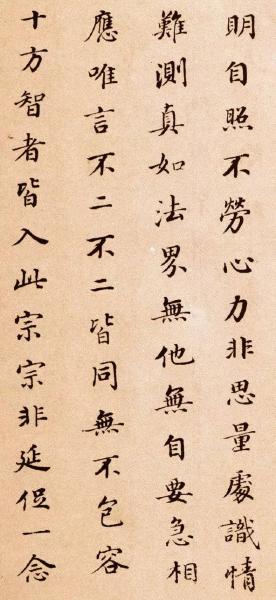 明自照不勞心力非思量處識情
難測真如法界無他無自要急相
應唯言不二不二皆同無不包容
十方智者皆入此宗宗非延促一念